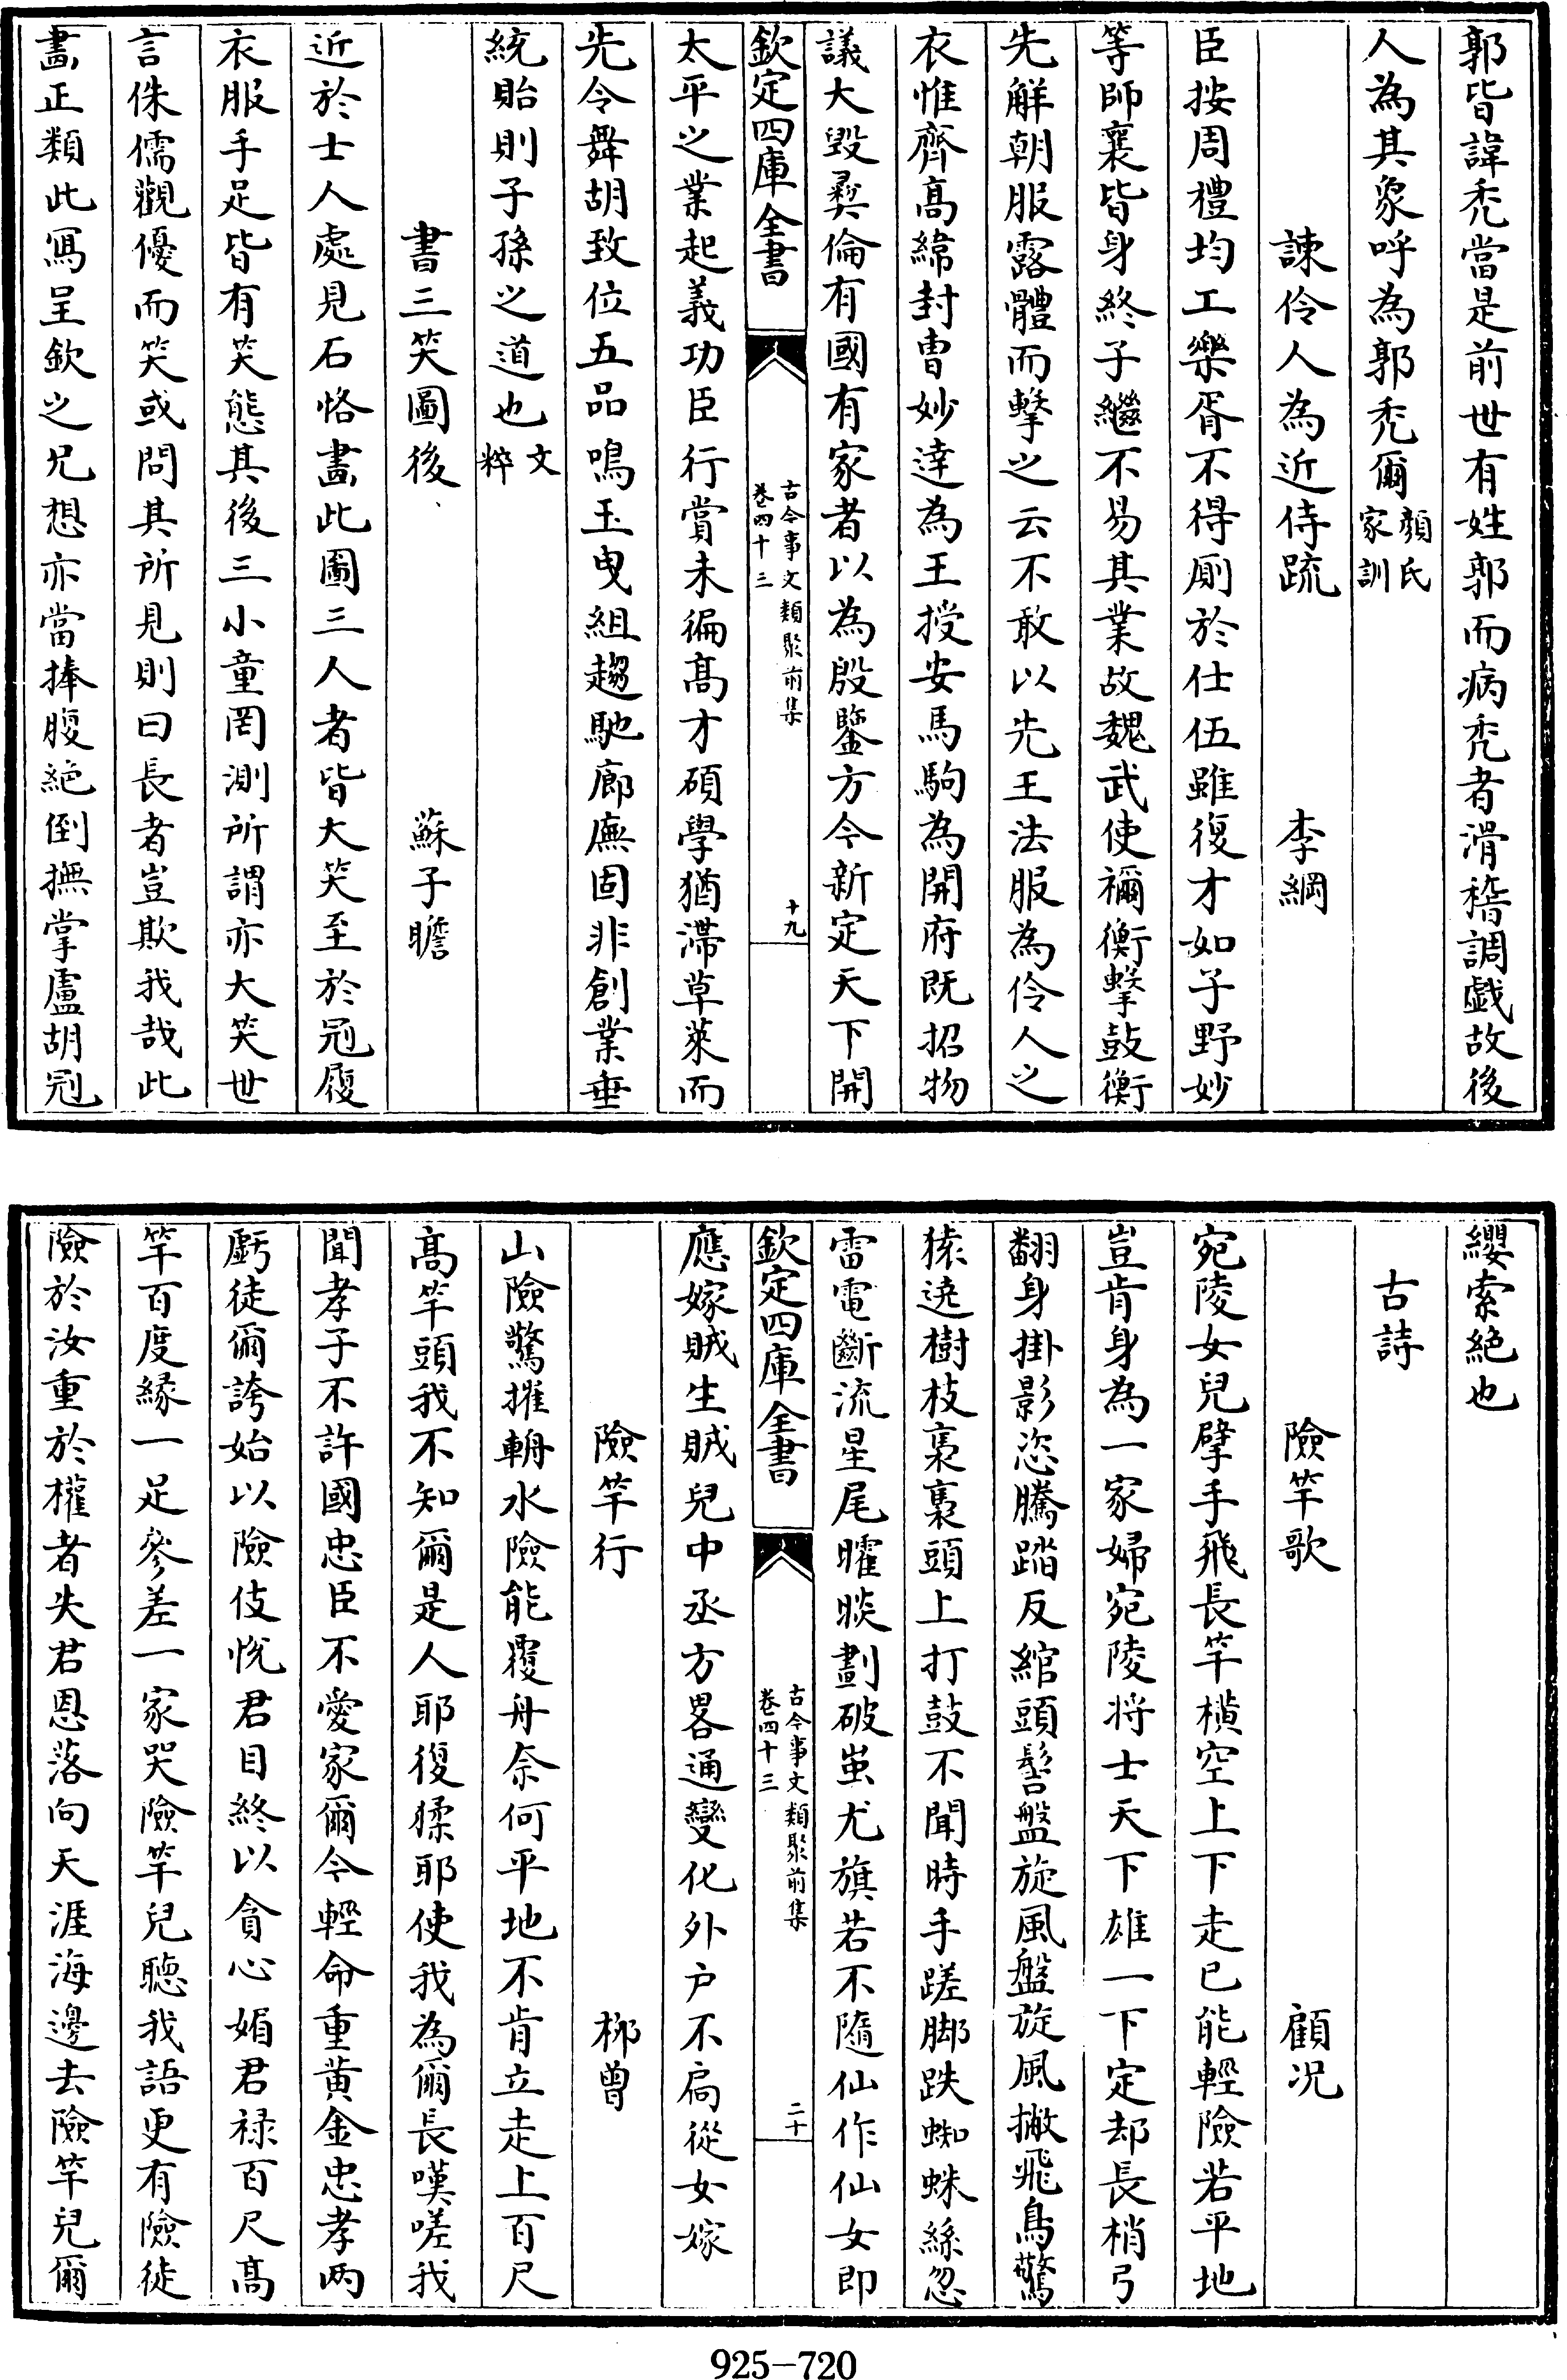 郭皆諱禿當是前世有姓郭而病禿者滑稽調戯故後
人為其象呼為郭禿爾顔氏家訓
諫伶人為近侍疏 李綱
臣按周禮均工樂胥不得厠於仕伍雖復才如子野妙
等師襄皆身終子繼不易其業故魏武使禰衡擊鼓衡
先解朝服露體而擊之云不敢以先王法服為伶人之
衣惟齊高緯封曹妙達為王授安馬駒為開府既招物
議大毀彛倫有國有家者以為殷鑒方今新定天下開
欽定四庫全書
古今事文類聚前集
卷四十三
十九
太平之業起義功臣行賞未徧高才碩學猶滯草萊而
先令舞胡致位五品鳴玉曳組趨馳廊廡固非創業垂
統貽則子孫之道也文粹
書三笑圖後 蘇子瞻
近於士人處見石恪畫此圖三人者皆大笑至於冠履
衣服手足皆有笑態其後三小童罔測所謂亦大笑世
言侏儒觀優而笑或問其所見則曰長者豈欺我哉此
畫正類此寫呈欽之兄想亦當捧腹絶倒撫掌盧胡冠
纓索絶也
古詩
險竿歌 顧况
宛陵女兒擘手飛長竿横空上下走已能輕險若平地
豈肯身為一家婦宛陵將士天下雄一下定却長梢弓
翻身掛影恣騰蹋反綰頭髻盤旋風盤旋風撇飛鳥驚
猿遶樹枝裊裊頭上打鼓不聞時手蹉脚跌蜘蛛絲忽
雷電斷流星尾矐睒劃破蚩尤旗若不隨仙作仙女即
欽定四庫全書
古今事文類聚前集
卷四十三
二十
應嫁賊生賊兒中丞方畧通變化外户不扃從女嫁
險竿行 柳曽
山險驚摧輈水險能覆舟奈何平地不肯立走上百尺
高竿頭我不知爾是人耶復猱耶使我為爾長嘆嗟我
聞孝子不許國忠臣不愛家爾今輕命重黄金忠孝两
虧徒爾誇始以險伎恱君目終以貪心媚君禄百尺高
竿百度緣一足參差一家哭險竿兒聽我語更有險徒
險於汝重於權者失君恩落向天涯海邊去險竿兒爾
925-720